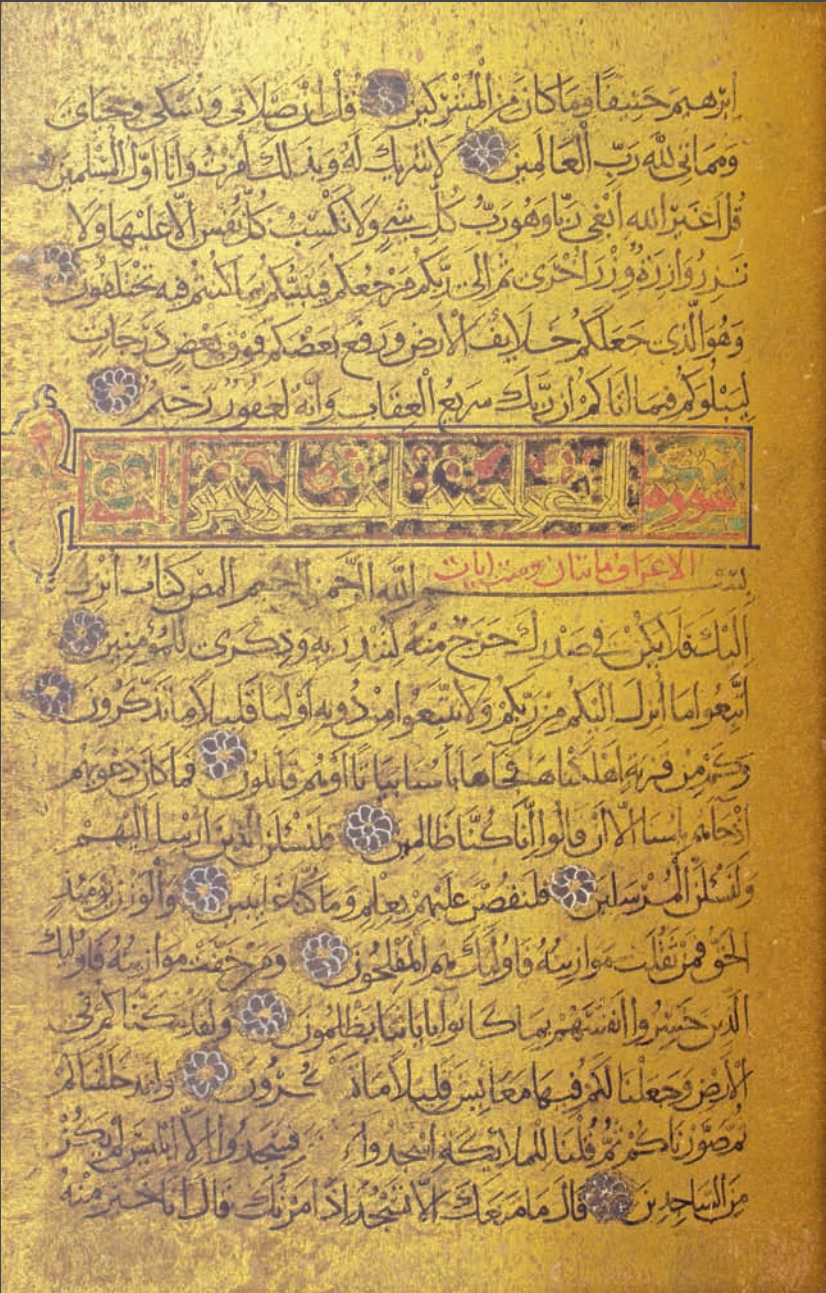 ابرهيم حنيفا وما كان من المشركين قل ان صلاتى ونسكى ومحياى
ومماتى لله رب العالمين لا شريك له وبذلك امرت وانا اول المسلمين
قل اغير الله ابغى ربا وهو رب كل شىء ولا تكسب كل نفس الا عليها ولا
تزر وازرة وزر اخرى ثم الى ربكم مرجعكم فينبئكم بما كنتم فيه تختلفون
وهو الذى جعلكم خلايف الارض ورفع بعضكم فوق بعض درجات
ليبلوكم فيما اتاكم ان ربك سريع العقاب وانه لغفور رحيم
سورة
الاعراف مايتان وست ايات
بسم الله الرحمن الرحيم المص كتاب انزل
اليك فلا يكن فى صدرك حرج منه لتنذر به وذكرى للمؤمنين
اتبعوا ما انزل اليكم من ربكم ولا تتبعوا من دونه اوليا قليلا ما تذكرون
وكم من قرية اهلكناها فجاها باسنا بياتا او هم قايلون فما كان دعويهم
اذ جاهم باسنا الا ان قالوا انا كنا ظالمين فلنسئلن الذين ارسل اليهم
ولنسئلن المرسلين فلنقصن عليهم بعلم وما كنا غايبين والوزن يوميذ
الحق فمن ثقلت موازينه فاوليك هم المفلحون ومن خفت موازينه فاوليك
الذين خسروا انفسهم بما كانوا باياتنا يظلمون ولقد مكناكم فى
الارض وجعلنا لكم فيها معايش قليلا ما تشكرون ولقد خلقناكم
ثم صورناكم ثم قلنا للملايكة اسجدوا فسجدوا الا ابليس لم يكن
من الساجدين قال ما منعك الا تسجد اذ امرتك قال انا خير منه